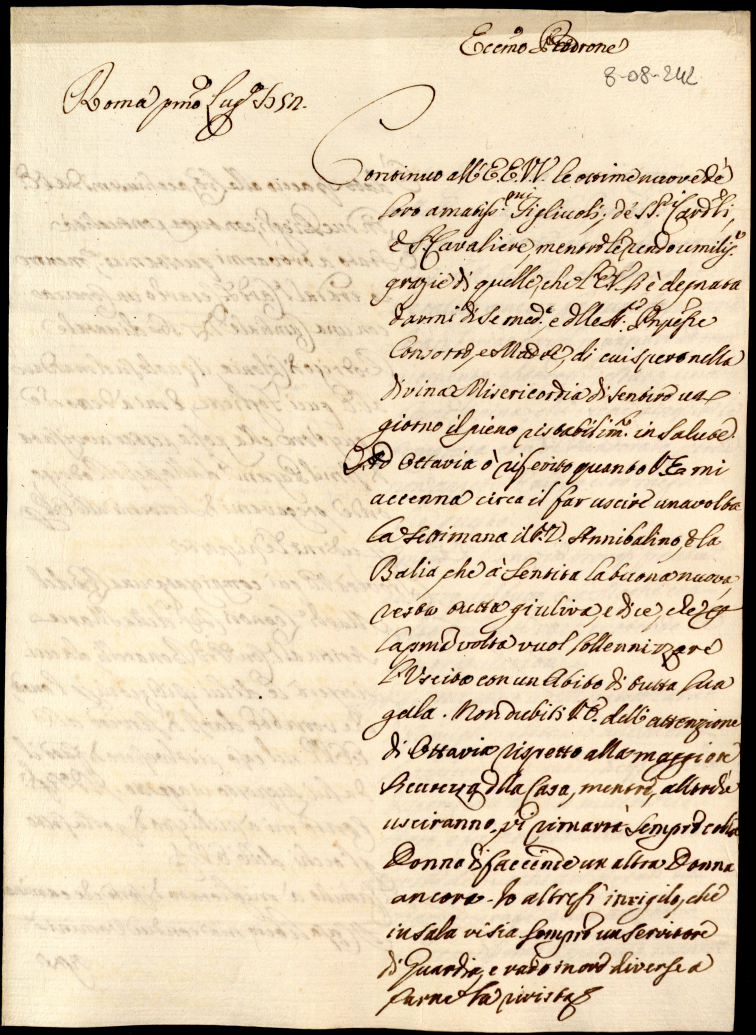 Eccmo Padrone
8-08-242
Roma pmo Lugo 1752.
Continuo all'EE.VV. le ottime nuove de'
loro amatissmi Figliuoli, de' SSri Cardli,
e Sr Cavaliere, mentre le rendo umilisse
grazie di quelle, che l'E.V. si è degnata
darmi di se meda e della Sra Pnpessa
Consorte, e Madre, di cui spero nella
divina Misericordia di sentire un
giorno il pieno ristabilimto in salute.
Ad Ottavia ò riferito quanto V.E. mi
accenna circa il far uscire una volta
la settimana il D. Annibalino, e la
Balia, che à sentita la buona nuova,
resta tutta giuliva, e dice che
la pma volta vuol sollennizzare
l'Uscita con un Abito di tutta sua
gala. Non dubiti V.E. dell'attenzione
di Ottavia rispetto alla maggiore
sicurezza della Casa, mentre, allorchè
usciranno, vi rimarrà sempre colla
Donna di faccende un altra Donna
ancora. Io altresì invigilo, che
in sala vi sia sempre un servitore
di Guardia, e vado in ore diverse a
farne la rivista